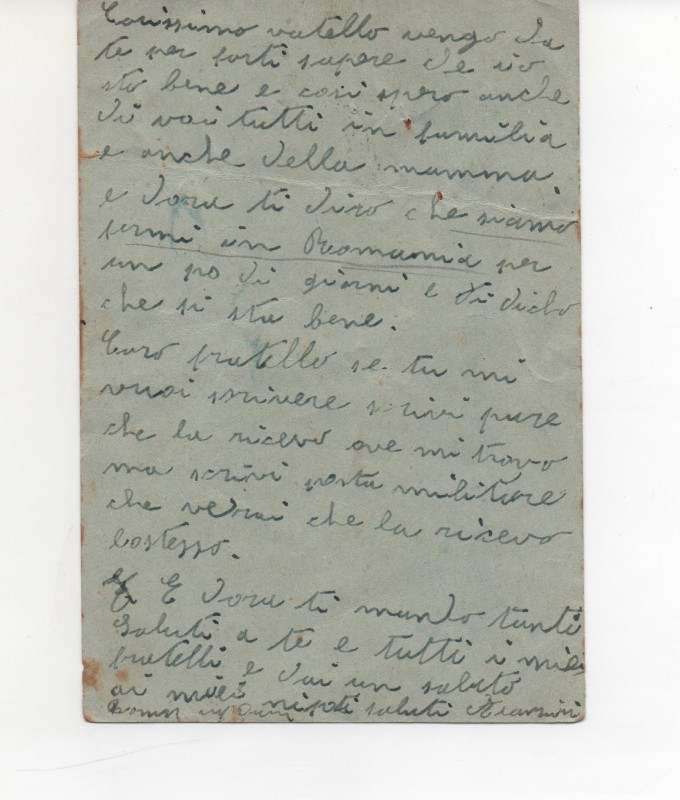 Carissimo vatello vengo da
te per farti sapere che iio
sto bene e così spero anche
di voi tutti in familia
e anche della mamma.
e Dora ti diro che siamo
fermi in Romania per
un po di giorni e ti dicho
che si sta bene.
Caro fratello se tu mi
vuoi scrivere scrivi pure
che la ricevo ove mi trovo
ma scrivi posta militare
che verai che la ricevo
lostesso.
E Dora ti mando tanti
Saluti a te e tutti i miei
fratelli e dai un saluto
ai miei nipoti saluti